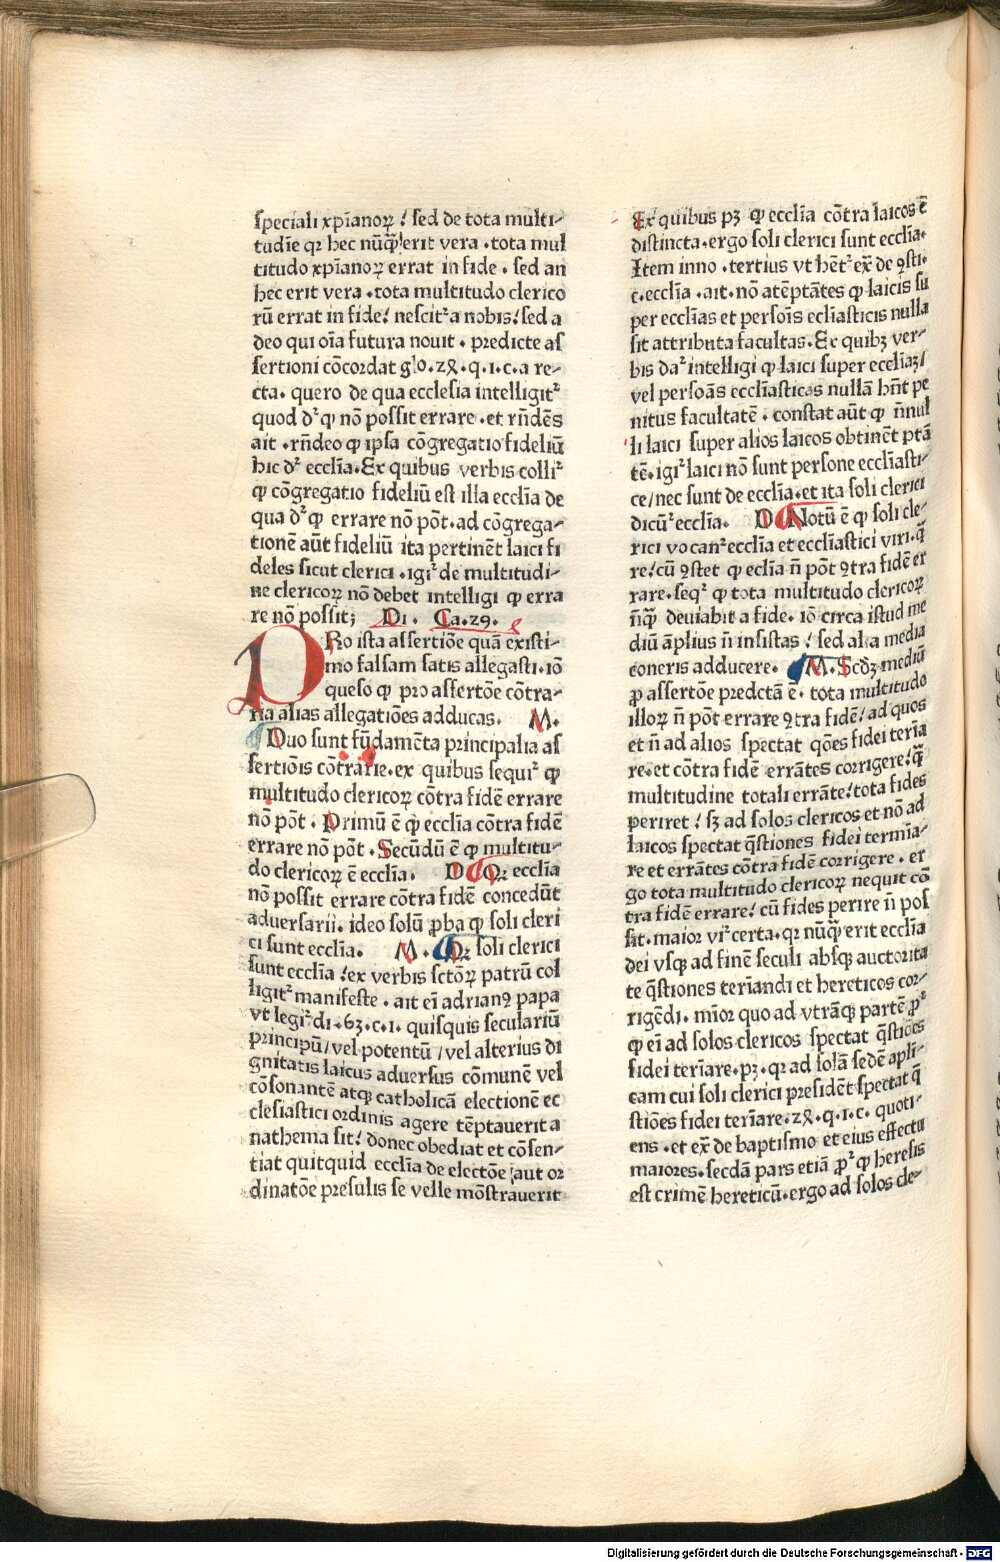 speciali xp̄ianoꝝ ! sed de tota multi-
tudīe qꝛ hec nūq̄ȝ erit vera . tota mul
titudo xp̄ianoꝝ errat in fide . sed an
hec erit vera . tota multitudo clerico
rū errat in fide! nescit᷑ a nobis! sed a
deo qui oīa futura nouit . predicte as
sertioni cōcordat glo. 24 . q . i . c . a re-
cta . quero de qua ecclesia intelligit᷑
quod d᷑ ꝙ nō possit errare . et rn̄dēs
ait . rn̄deo ꝙ ipsa cōgregatio fideliū
hic d᷑ ecclīa . Ex quibus verbis colli᷑
ꝙ cōgregatio fideliū est illa ecclīa de
qua d᷑ ꝙ errare nō pōt . ad cōgrega-
tionē aūt fideliū ita pertinēt laici fi
deles sicut clerici . igi᷑ de multitudi-
ne clericoꝝ nō debet intelligi ꝙ erra
re nō possit; Di . Ca . 29 .
PRo ista assertiōe quā existi-
mo falsam satis allegasti . iō
queso ꝙ pro assertōe cōtra-
ria alias allegatiōes adducas . M .
Duo sunt fūdamēta principalia as
sertiōis cōtrarie . ex quibus sequi᷑ ꝙ
multitudo clericoꝝ cōtra fidē errare
nō pōt . Primū ē ꝙ ecclīa cōtra fidē
errare nō pōt . Secūdū ē ꝙ multitu-
do clericoꝝ ē ecclīa . D Qꝛ ecclīa
nō possit errare cōtra fidē concedūt
aduersarii . ideo solū ꝓba ꝙ soli cleri
ci sunt ecclīa . M . Qꝛ soli clerici
sunt ecclīa ! ex verbis sctōꝝ patrū col
ligit᷑ manifeste . ait eī adrianꝰ papa
vt legi᷑ di . 63 . c . i . quisquis seculariū
principū / vel potentū / vel alterius di
gnitatis laicus aduersus cōmunē vel
cōsonantē atqꝫ catholicā electionē ec
clesiastici ordinis agere tēptauerit a
nathema sit! donec obediat et cōsen-
tiat quitquid ecclīa de electōe aut or
dinatōe presulis se velle mōstrauerit
Ex quibus pꝫ ꝙ ecclīa cōtra laicos ē
distincta . ergo soli clerici sunt ecclīa .
Item inno . tertius vt hēt᷑ ex̄ de ꝯsti .
c . ecclīa . ait . nō atēptātes ꝙ laicis su
per ecclīas et persoīs eclīasticis nulla
sit attributa facultas . Ex quibꝫ ver-
bis da᷑ intelligi ꝙ laici super ecclīaȝ /
vel persoās ecclīasticas nullā hn̄t pe
nitus facultatē . constat aūt ꝙ n̄nul
li laici super alios laicos obtinēt ptā
tē . igi᷑ laici nō sunt persone ecclīasti-
ce / nec sunt de ecclīa . et ita soli clerici
dicū᷑ ecclīa . D Notū ē ꝙ soli cle-
rici vocan᷑ ecclīa et ecclīastici viri . q̄
re! cū ꝯstet ꝙ eclīa n̄ pōt ꝯtra fidē er
rare . seq᷑ ꝙ tota multitudo clericoꝝ
n̄q̄ȝ deuiabit a fide . iō circa istud me
diū āplius n̄ insistas ! sed alia media
coneris adducere . M . Scdꝫ mediū
ꝓ assertōe predctā ē . tota multitudo
illoꝝ n̄ pōt errare ꝯtra fidē! ad quos
et n̄ ad alios spectat qōes fidei terīa
re . et cōtra fidē errātes corrigere! q̄ȝ
multitudine totali errāte! tota fides
periret ! sꝫ ad solos clericos et nō ad
laicos spectat q̄stiones fidei termīa-
re et errātes cōtra fidē corrigere . er
go tota multitudo clericoꝝ nequit cō
tra fidē errare! cū fides perire n̄ pos
sit . maior vi᷑ certa . qꝛ nūq̄ȝ erit ecclīa
dei vsqꝫ ad finē seculi absqꝫ auctorita
te q̄stiones terīandi et hereticos cor-
rigēdi . mīor quo ad vtrāqꝫ partē ꝓ᷑
ꝙ eī ad solos clericos spectat q̄stiōes
fidei terīare . pꝫ . qꝛ ad solā sedē apl̄i-
cam cui soli clerici presidēt spectat q̄
stiōes fidei terīare . 24 . q . i . c . quoti-
ens . et ex̄ de baptismo et eius effectu
maiores . secdā pars etiā ꝓ᷑ ꝙ heresis
est crimē hereticū . ergo ad solos cle-
Digitalisierung gefördert durch die Deutsche Forschungsgemeinschaft - DFG